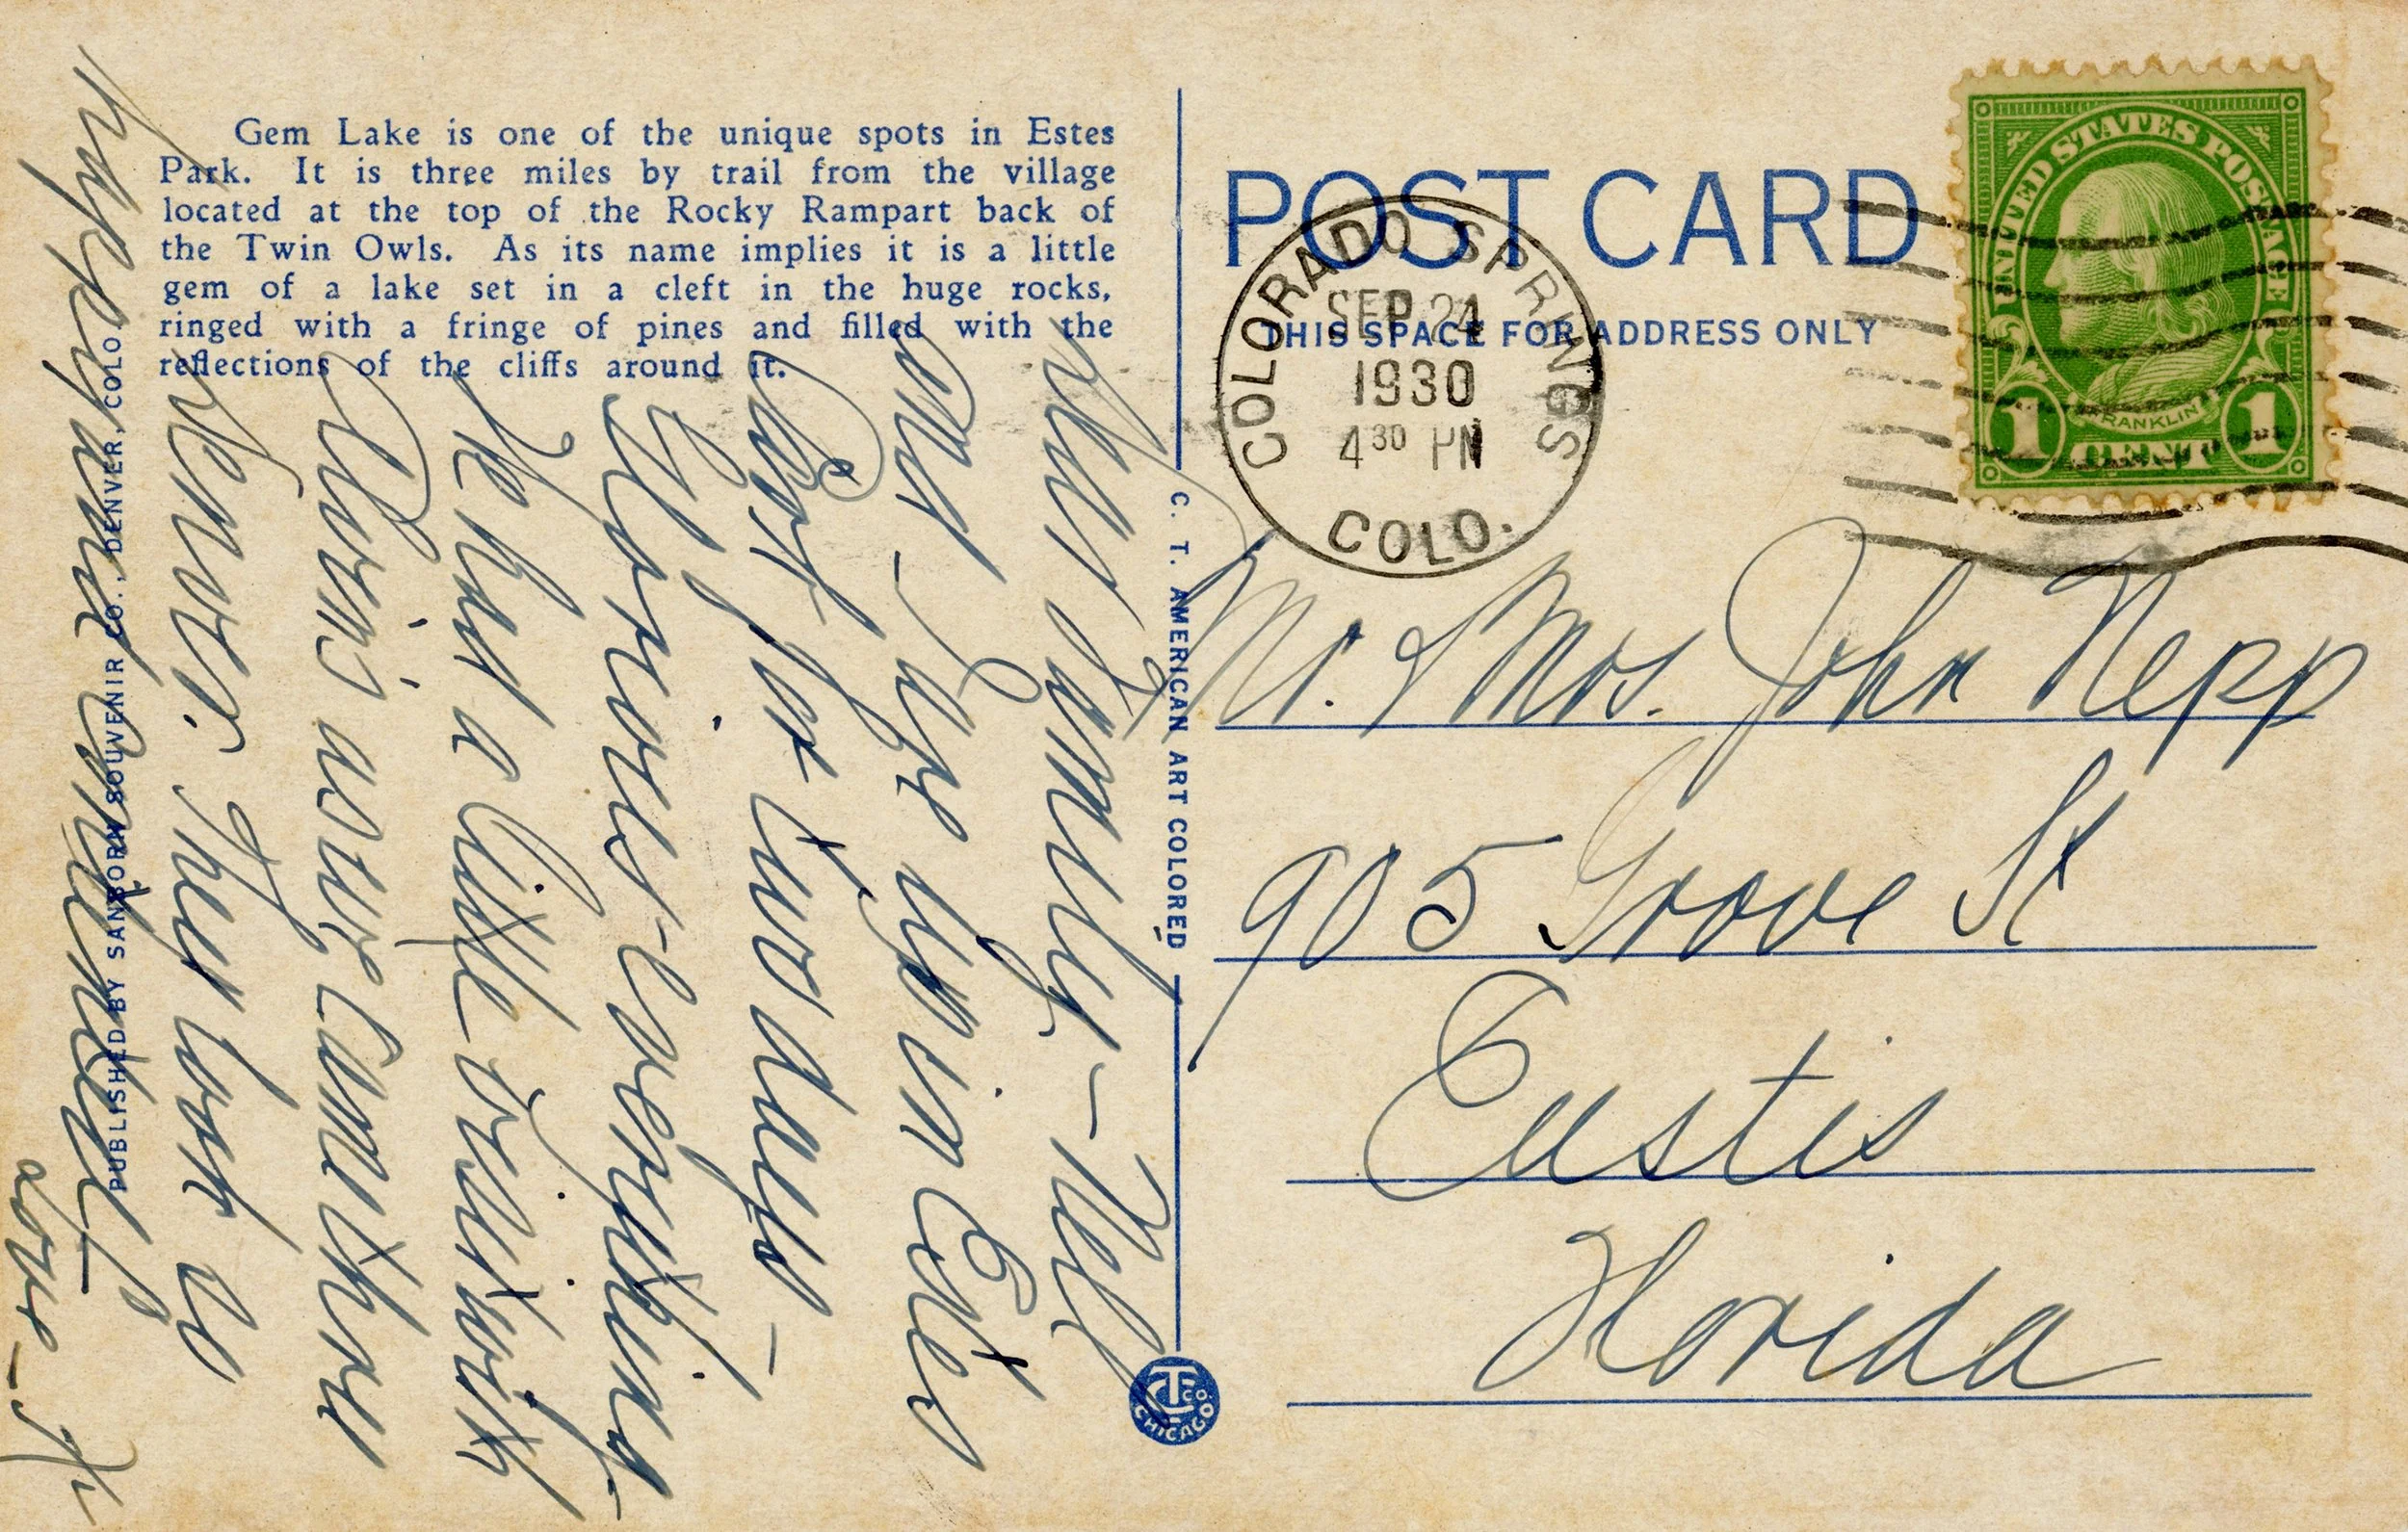 Gem Lake is one of the unique spots in Estes
Park. It is three miles by trail from the village
located at the top of the Rocky Rampart back of
the Twin Owls. As its name implies it is a little
gem of a lake set in a cleft in the huge rocks,
ringed with a fringe of pines and filled with the
reflections of the cliffs around it.
PUBLISHED BY SANBORN SOUVENIR CO., DENVER, COLO.
Family – Nell
are up in Estes
Park for two days –
Glorious – everything.
We had a little visit with
as we came thru
Denver. They look so
happy and contented.
Love –
C. T. AMERICAN ART COLORED
CT CO. CHICAGO
POST CARD
THIS SPACE FOR ADDRESS ONLY
COLORADO SPRINGS
SEP 24
1930
4 30 PM
COLO.
UNITED STATES POSTAGE
FRANKLIN
1 CENT 1
Mr. & Mrs. John
905 Grove St
Eustis
Florida